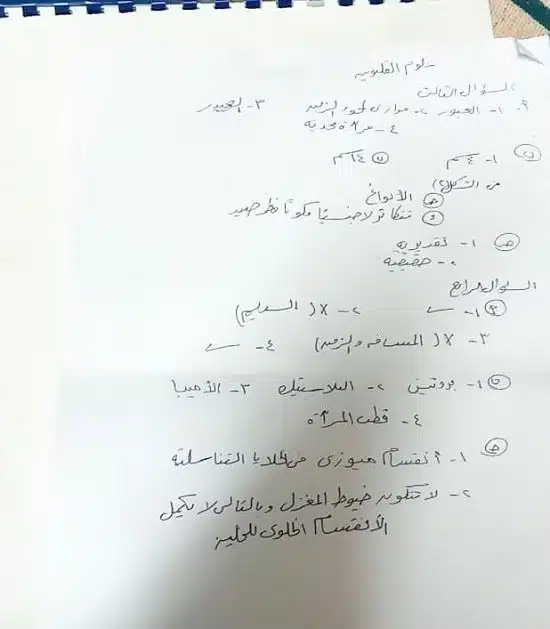 علوم القليوبية
السؤال الثالث
٩- ١- العبور ٢- موازى لمحور الزمن ٣- العبور
٤- مرآة محدبة
(ب) ١- ٤ سم (ب) ١٤ سم
من الشكل (٢)
(٢) الأنواع
(٥) تتكاثر لا جنسيًا مكونًا فطر جديد
(ج) ١- تقديرية
٢- حقيقية
السؤال الرابع
(٩) ١- ✓ ٢- X (السديم)
٣- X (المسافة والزمن) ٤- ✓
(ب) ١- بروتين ٢- البلاستيك ٣- الأميبا
٤- قطب المرآة
(ج) ١- انقسام ميوزى فى الخلايا التناسلية
٢- لا تتكون خيوط المغزل وبالتالى لا يكمل
الأنقسام الخلوى للخلية